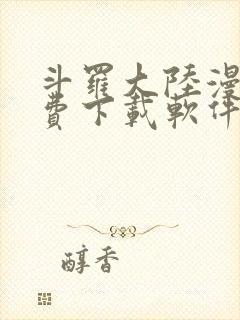 斗羅大陸漫
費下載軟件
醇香